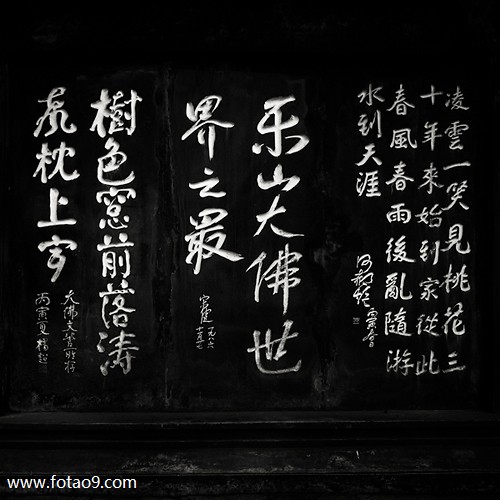 凌雲一笑見桃花三
十年來始到家從此
春風春雨後亂隨流
水到天涯
丙寅春
乐山大佛世
界之最
一九八六
樹色窓前落濤
枕上
大佛文管所
丙寅夏楊超
www.fotao9.com